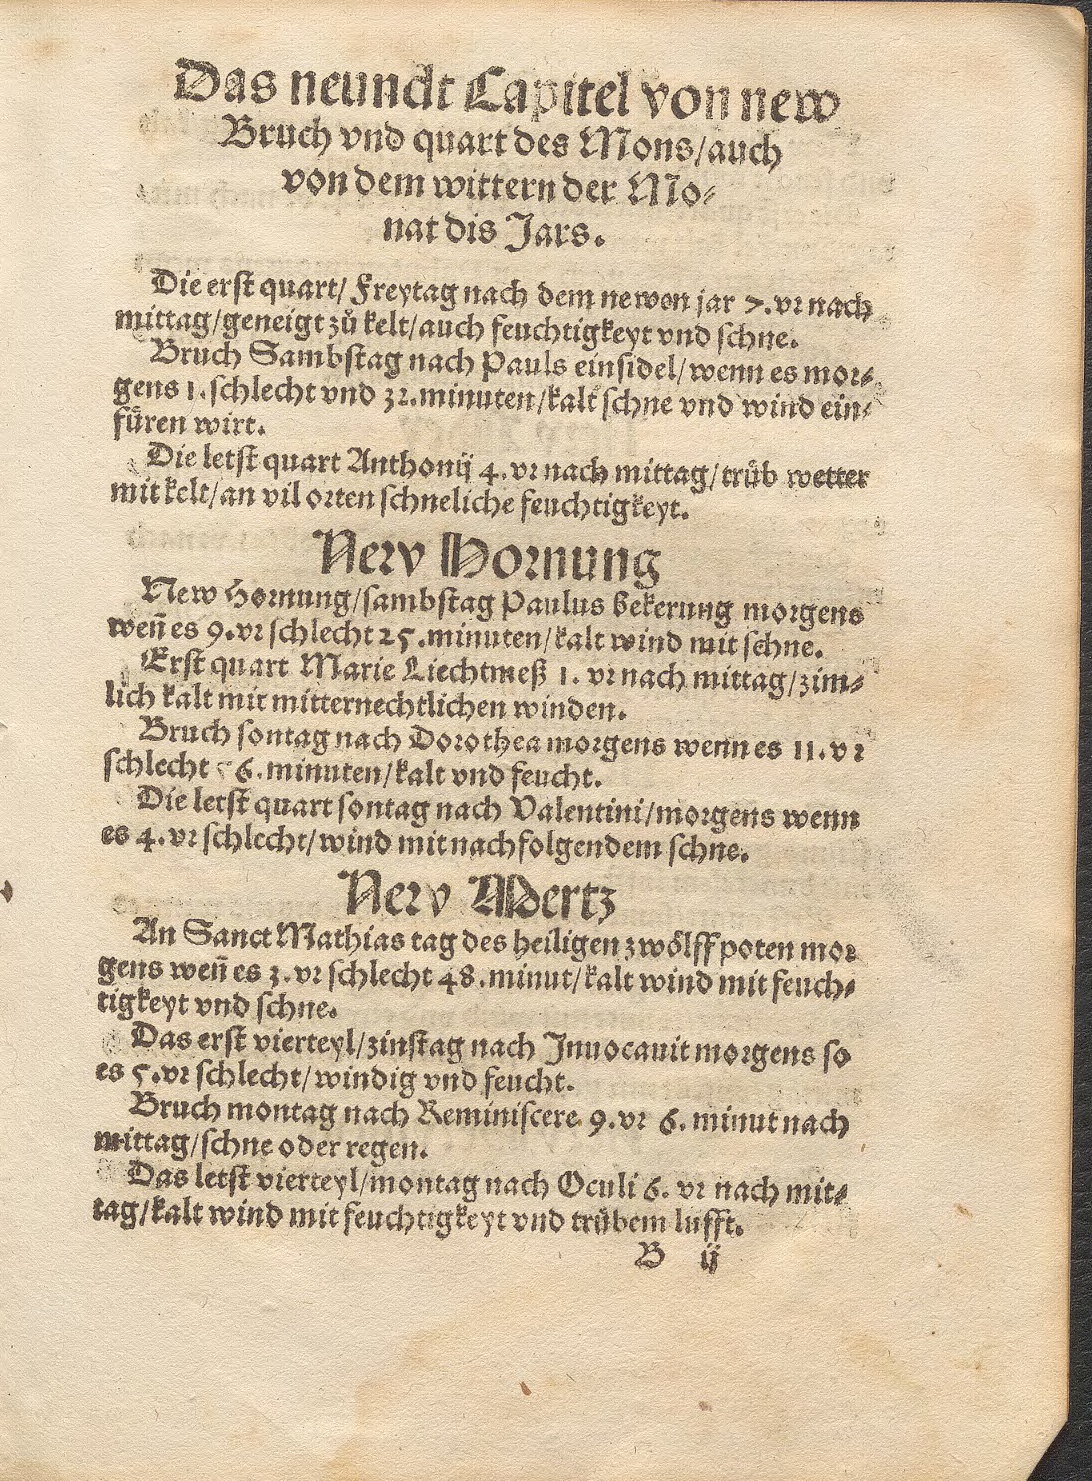 Das neundt Capitel von new
Bruch vnd quart des Mons/auch
von dem wittern der Mo⸗
nat dis Jars.
Die erst quart/ Freytag nach dem newen jar 7. vr nach
mittag/geneigt zů kelt/auch feuchtigkeyt vnd schne.
Bruch Sambstag nach Pauls einsidel/wenn es mor⸗
gens 1. schlecht vnd 32. minuten/kalt schne vnd wind ein⸗
füren wirt.
Die letst quart Anthonij 4. vr nach mittag/trüb wetter
mit kelt/an vil orten schneliche feuchtigkeyt.
Nerv Hornung
New Hornung/sambstag Paulus bekerung morgens
weñ es 9. vr schlecht 25. minuten/kalt wind mit schne.
Erst quart Marie Liechtmeß 1. vr nach mittag/zim⸗
lich kalt mit mitternechtlichen winden.
Bruch sontag nach Dorothea morgens wenn es 11. vr
schlecht 56. minuten/kalt vnd feucht.
Die letst quart sontag nach Valentini/morgens wenn
es 4. vr schlecht/wind mit nachfolgendem schne.
Nerv Mertz
An Sanct Mathias tag des heiligen zwölffpoten mor
gens weñ es 3. vr schlecht 48. minut/kalt wind mit feuch⸗
tigkeyt vnd schne.
Das erst vierteyl/zinstag nach Inuocauit morgens so
es 5. vr schlecht/windig vnd feucht.
Bruch montag nach Reminiscere 9. vr 6. minut nach
mittag/schne oder regen.
Das letst vierteyl/montag nach Oculi 6. vr nach mit⸗
tag/kalt wind mit feuchtigkeyt vnd trübem lufft.
B ij